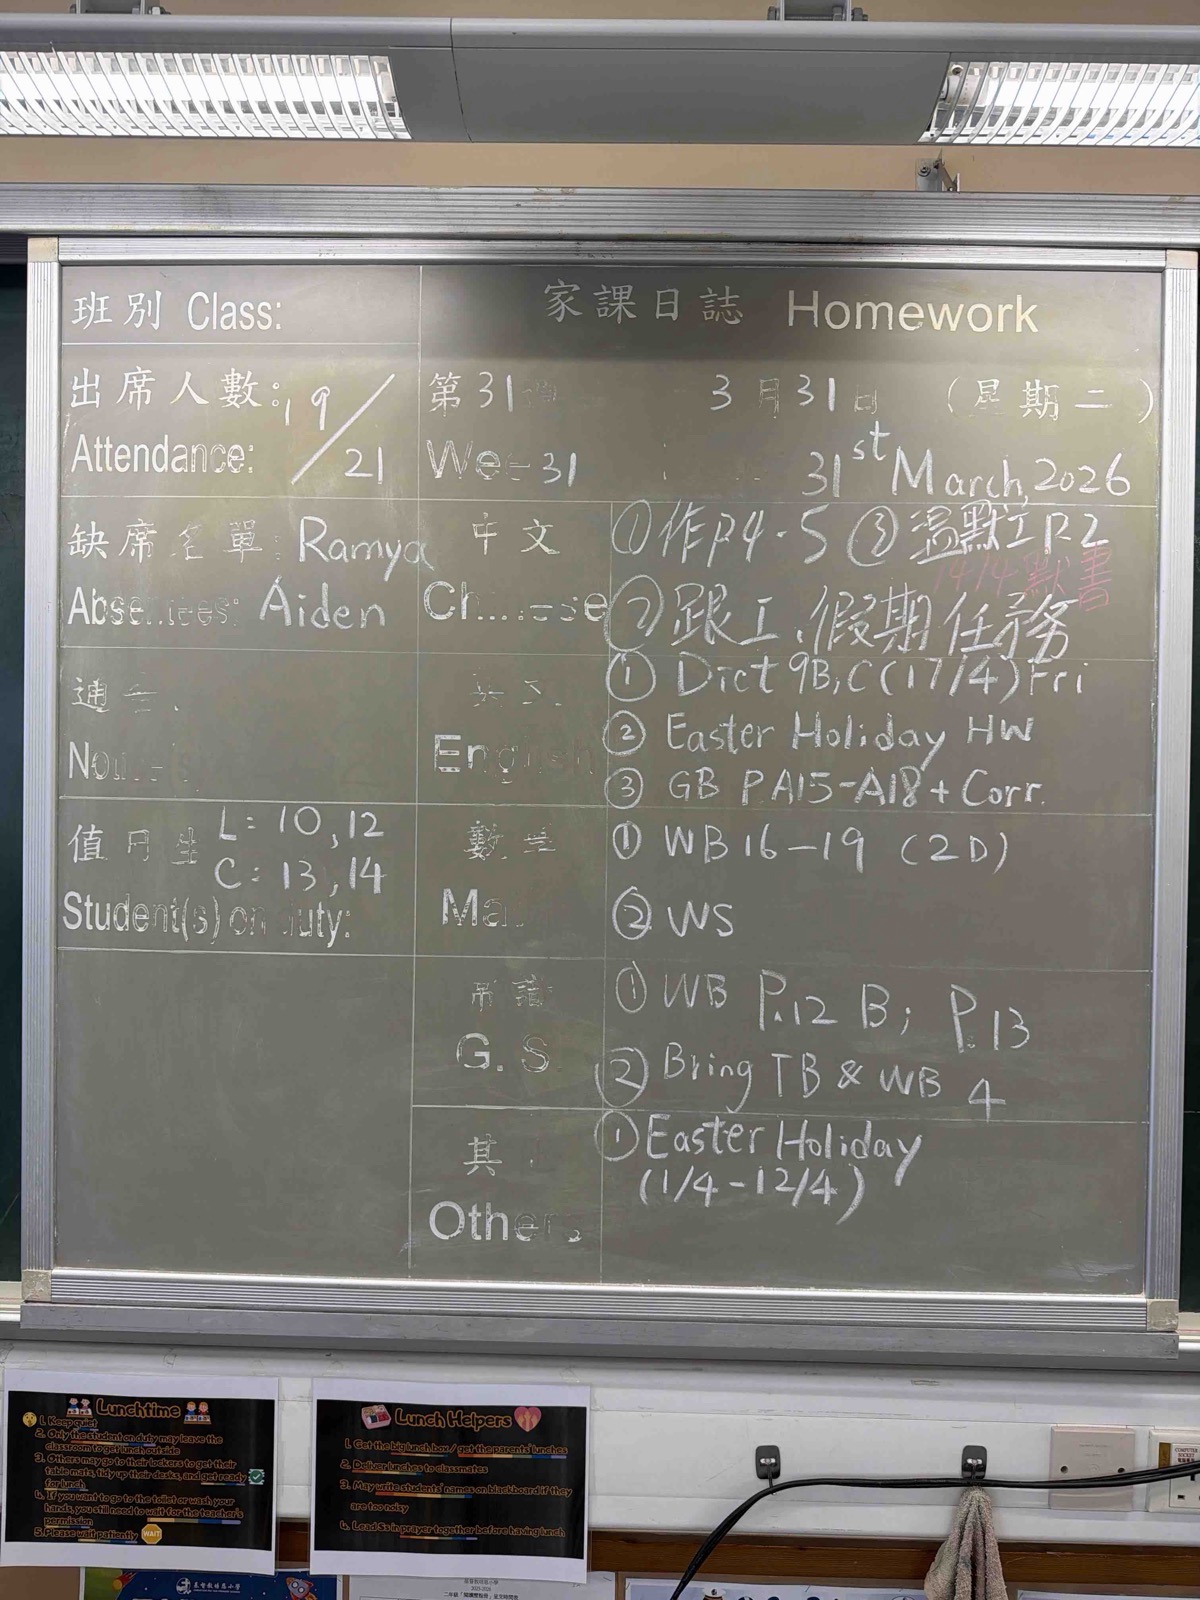 班別 Class:
家課日誌 Homework
出席人數: 19/21
Attendance:
第31 3月31日 (星期二)
31 31st March, 2026
缺席名單: Ramya
Absentees: Aiden
中文
①作P4-5 ③溫默工P.2
14/4默書
②跟工、假期任務
① Dict 9B,C(17/4)Fri
English
② Easter Holiday HW
③ GB P A15-A18 + Corr.
值日生 L: 10,12
C: 13,14
Student(s) on duty:
① WB 16-19 (2D)
② WS
常識
G.S.
① WB P.12 B; P.13
② Bring TB & WB 4
其
① Easter Holiday
(1/4-12/4)
Lunchtime
1. Keep quiet
2. Only the student on duty may leave the
classroom to get lunch outside
3. Others may go to their lockers to get their
table mats, tidy up their desks, and get ready
for lunch
4. If you want to go to the toilet or wash your
hands, you still need to wait for the teacher's
permission
5. Please wait patiently WAIT
Lunch Helpers
1. Get the big lunch box/ get the parents' lunches
2. Deliver lunches to classmates
3. May write students' names on blackboard if they
are too noisy
4. Lead Ss in prayer together before having lunch
COMPUTER
SOCKET
2025-2026